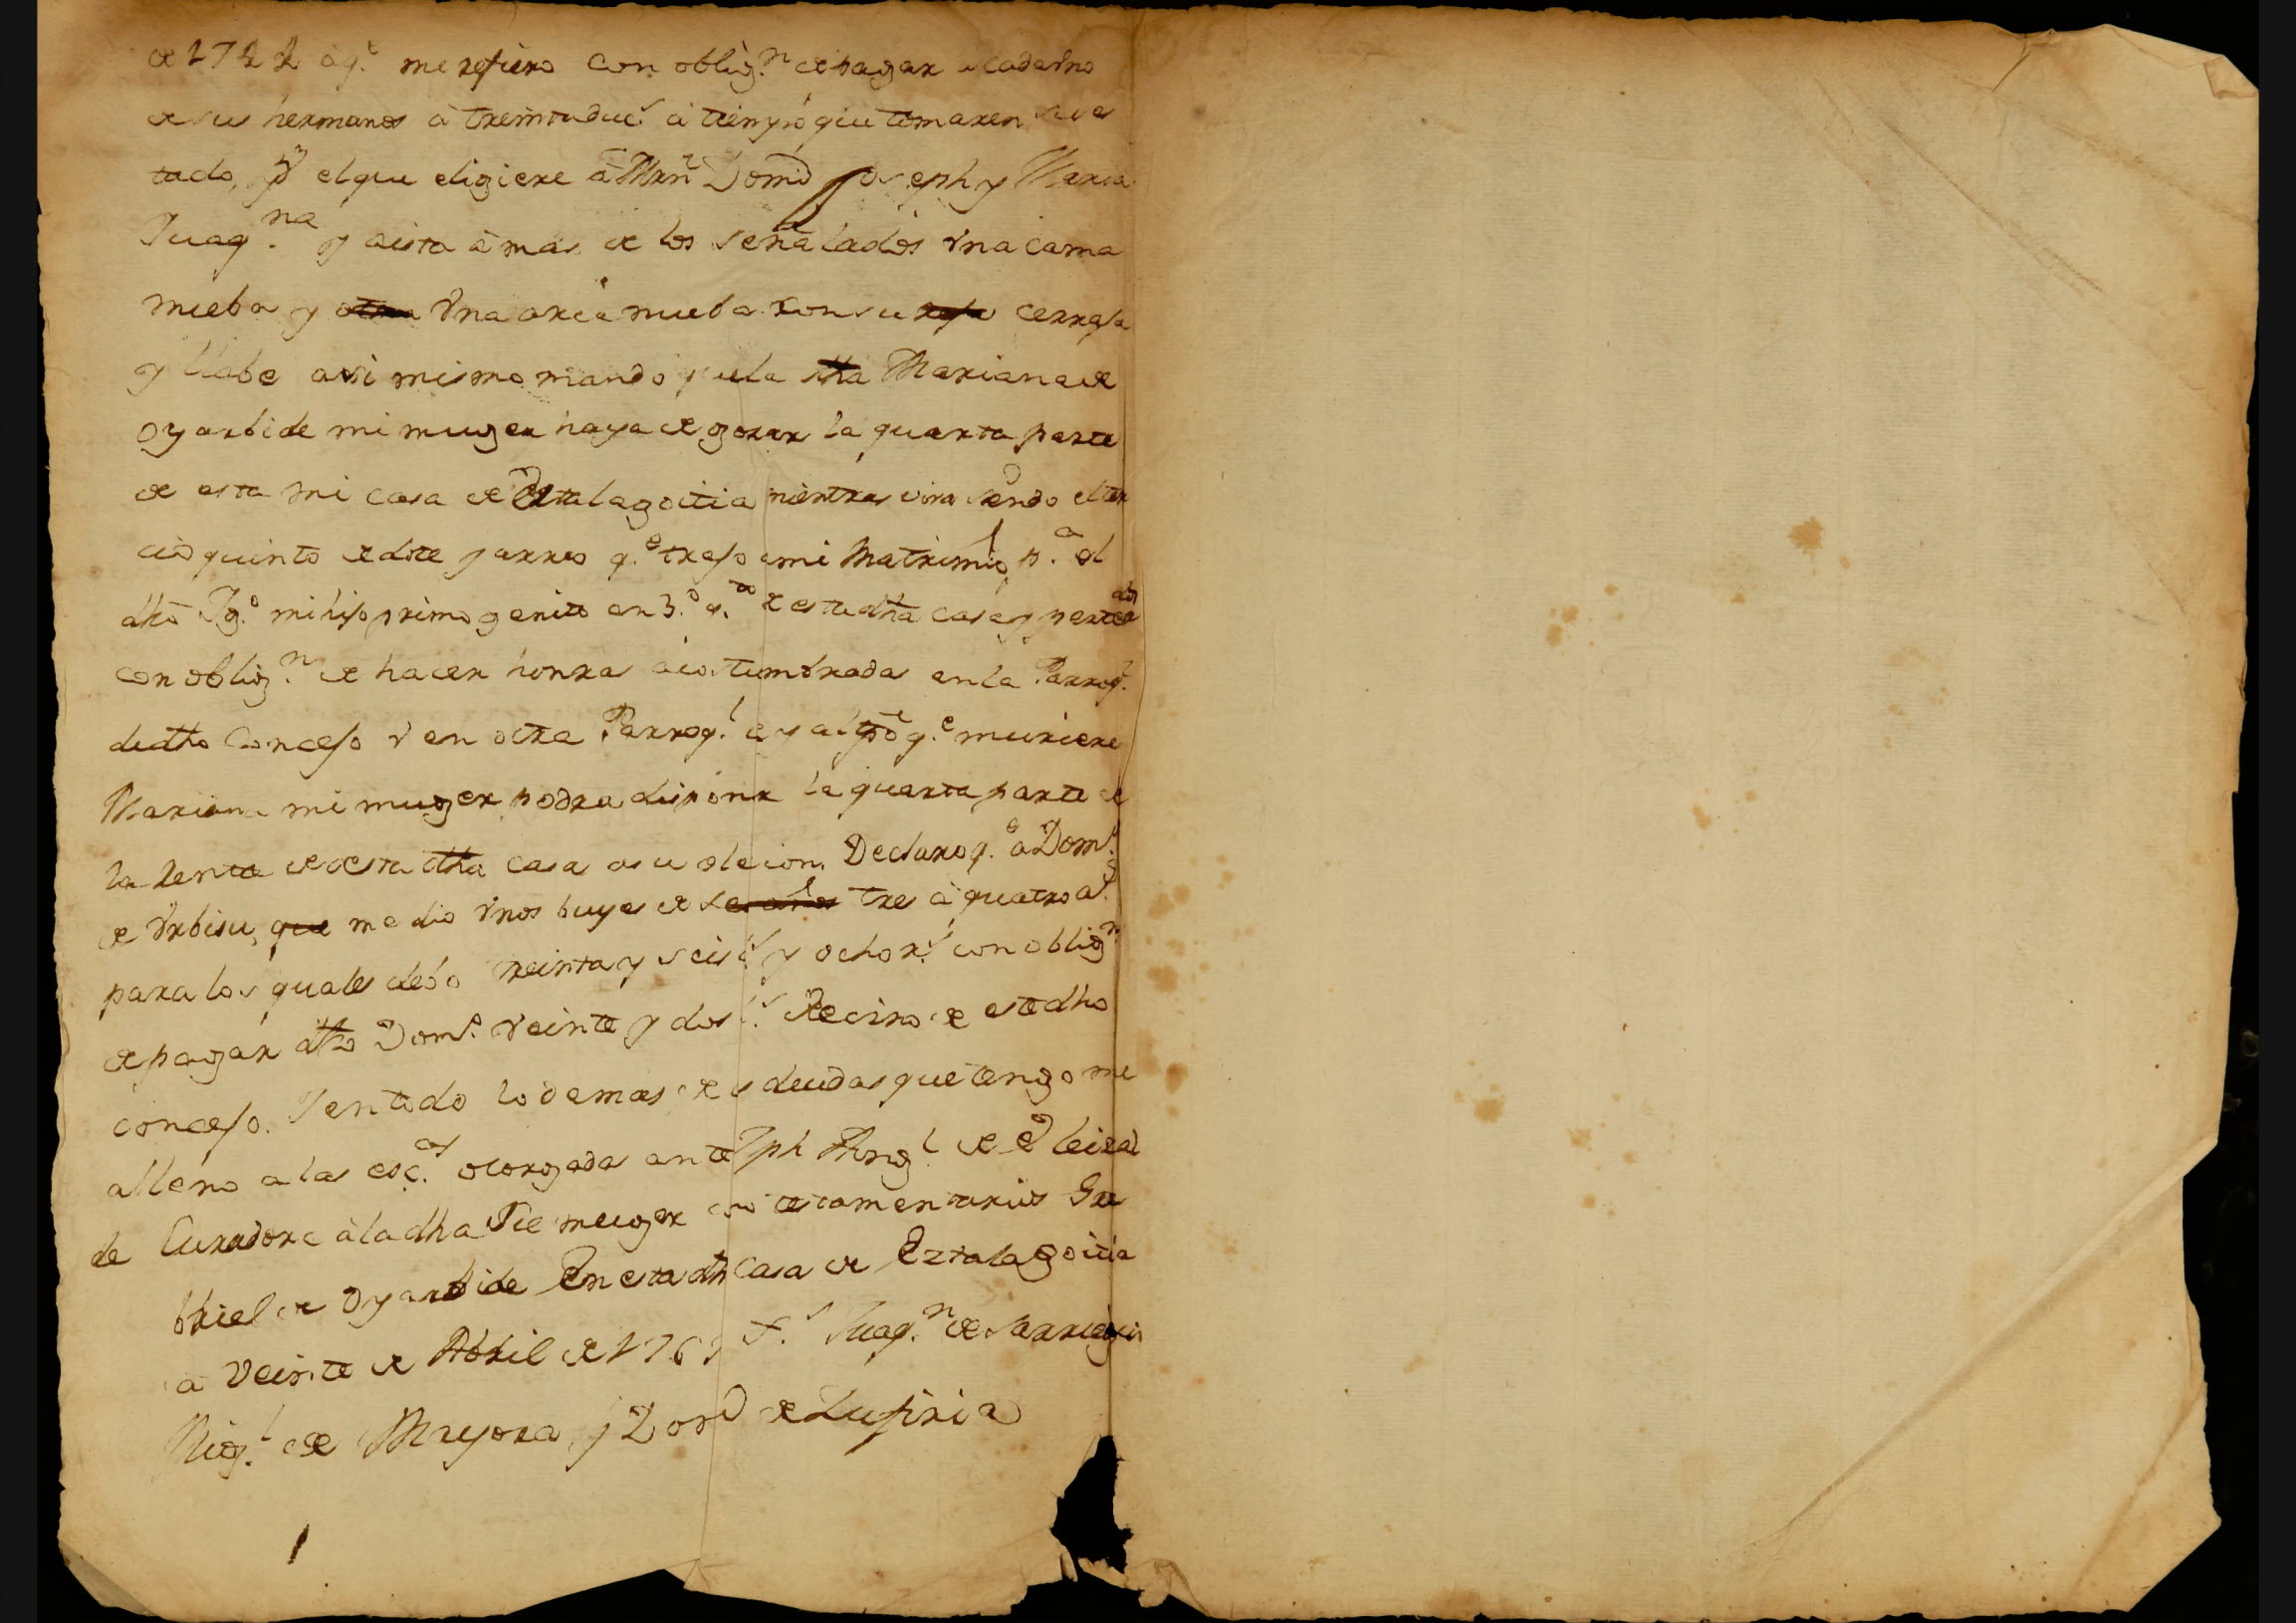 de 17 q.e me refiero con oblig.n de pagar a cada vno
de sus hermanos a treinta duc.s a tiempo que tomaren su es
tado, el que eligiere a Domĩ Joseph y Maria
Juaq.na y a esta a mas de los señalados vna cama
nueba y otra vna arca nueba con su cerraja
y llabe assi mismo mando que la dha Mariana de
oyarbide mi muger haya de gozar la quarta parte
de esta mi casa de Eztalagoitia mientras viva siendo el ter
cio quinto de dote y arreo q.e trajo a mi Matrimio p.a el
dho Ig.o mi hijo primogenito en de esta dha casa y perten
con oblig.n de hacer honras acostumbradas en la Parroq.l
de dho Concejo v en otra Parroq.l y al tpõ q.e muriere
Mariana mi muger podra disponer la quarta parte de
la renta de esta dha casa a su elecion. Declaro q.e a Dom.o
de Vrbisu, que me dio vnos buyes de tres a quatro a.s
para los quales debo treinta y seis y ocho r.s con oblig.n
de pagar a dho Dom.o veinte y dos Vecino de este dho
concejo. Y en todo lo demas de deudas que tengo me
alleno a las esc.as otorgadas ante Jph Ang.l de Eleizal
de Curadora a la dha mi muger testamentarios Ga
briel de Oyarbide En esta dh casa de Eztalagoitia
a veinte de Abril de 176 t.s Juaq.n de Sarriegui
Mig.l de Mayora, y de Lujiria